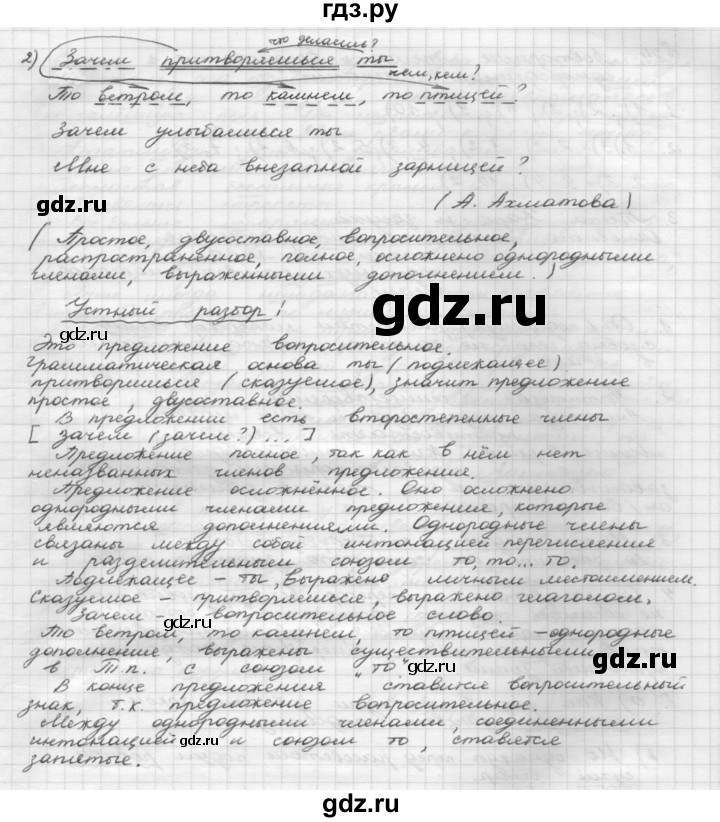 гдз.ру
что делаешь?
2) Зачем притворяешься ты
чем, кем?
То ветром, то камнем, то птицей?
Зачем улыбаешься ты
Мне с неба внезапной зарницей?
gdz.ru (А. Ахматова)
(Простое, двусоставное, вопросительное,
распространенное, полное, осложнено однородными
членами, выраженными дополнением.)
Устный разбор!
gdz.ru
gdz.ru
Это предложение вопросительное.
Грамматическая основа ты (подлежащее)
притворяешься (сказуемое), значит предложение
простое, двусоставное.
В предложении есть второстепенные члены
[Зачем (зачем?)...]
Предложение полное, так как в нём нет
неназванных членов предложения.
Предложение осложнённое. Оно осложнено
однородными членами предложения, которые
являются дополнениями. Однородные члены
связаны между собой интонацией перечисления
и разделительным союзом то, то... то.
Подлежащее – ты, выражено личным местоимением.
Сказуемое – притворяешься, выражено глаголом.
gdz.ru
Зачем – вопросительное слово.
То ветром, то камнем, то птицей – однородные
дополнения, выражены существительными
в Т.п. с союзом "то"
gdz.ru
В конце предложения ставится вопросительный
знак, т.к. предложение вопросительное.
Между однородными членами, соединенными
интонацией и союзом то, ставятся
gdz.ru
запятые.
gdz.ru